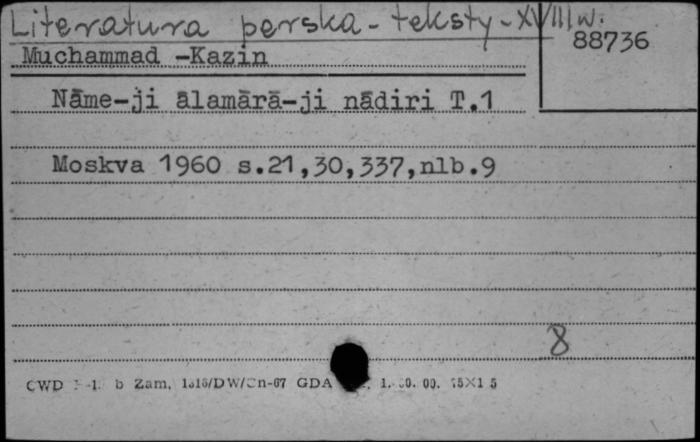 Literatura perska - teksty - XVIII w.
88736
Muchammad -Kazin
Nāme-ji ālamārā-ji nādiri T.1
Moskva 1960 s.21,30,337,nlb.9
8
CWD b Zam. GDA